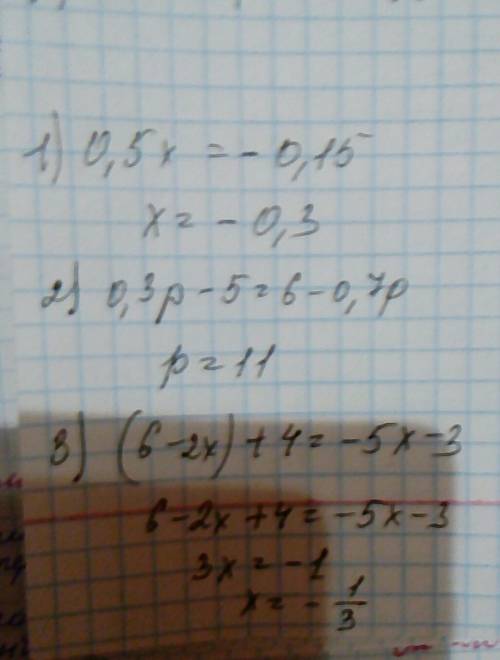 1) 0,5x = - 0,15
x = - 0,3
2) 0,3p - 5 = 6 - 0,7p
p = 11
3) (6 - 2x) + 4 = -5x - 3
6 - 2x + 4 = -5x - 3
3x = -1
x = - 1/3